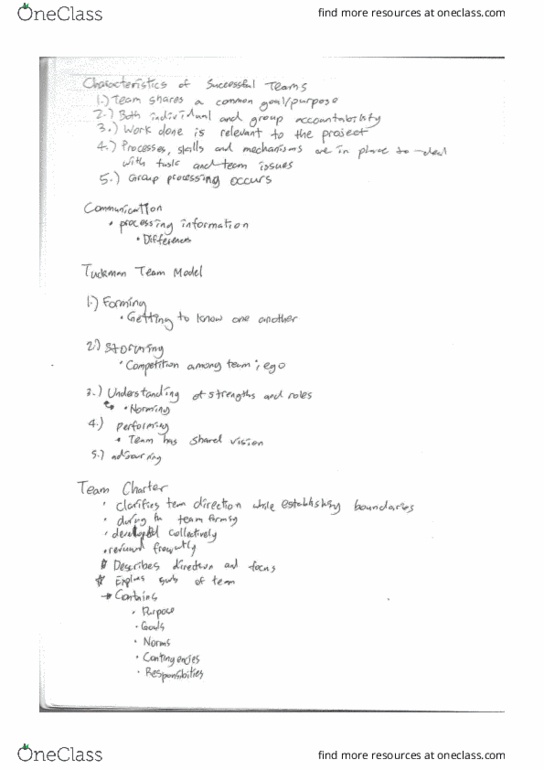 OneClass
find more resources at oneclass.com
Characteristics of Successful Teams
1.) Team shares a common goal/purpose
2.) Both individual and group accountability
3.) Work done is relevant to the project
4.) Processes, skills and mechanisms are in place to deal
with task and team issues
5.) Group processing occurs
Communication
• processing information
• Differences
Tuckman Team Model
1.) Forming
• Getting to know one another
2.) Storming
• Competition among team; ego
3.) Understanding of strengths and roles
• Norming
4.) performing
• Team has shared vision
5.) adjourning
Team Charter
• clarifies team direction while establishing boundaries
• during team forming
• developed collectively
• frequently
* Describes direction and focus
* of team
→ Contains
• Purpose
• Goals
• Norms
• Contingencies
• Responsibilities
OneClass
find more resources at oneclass.com